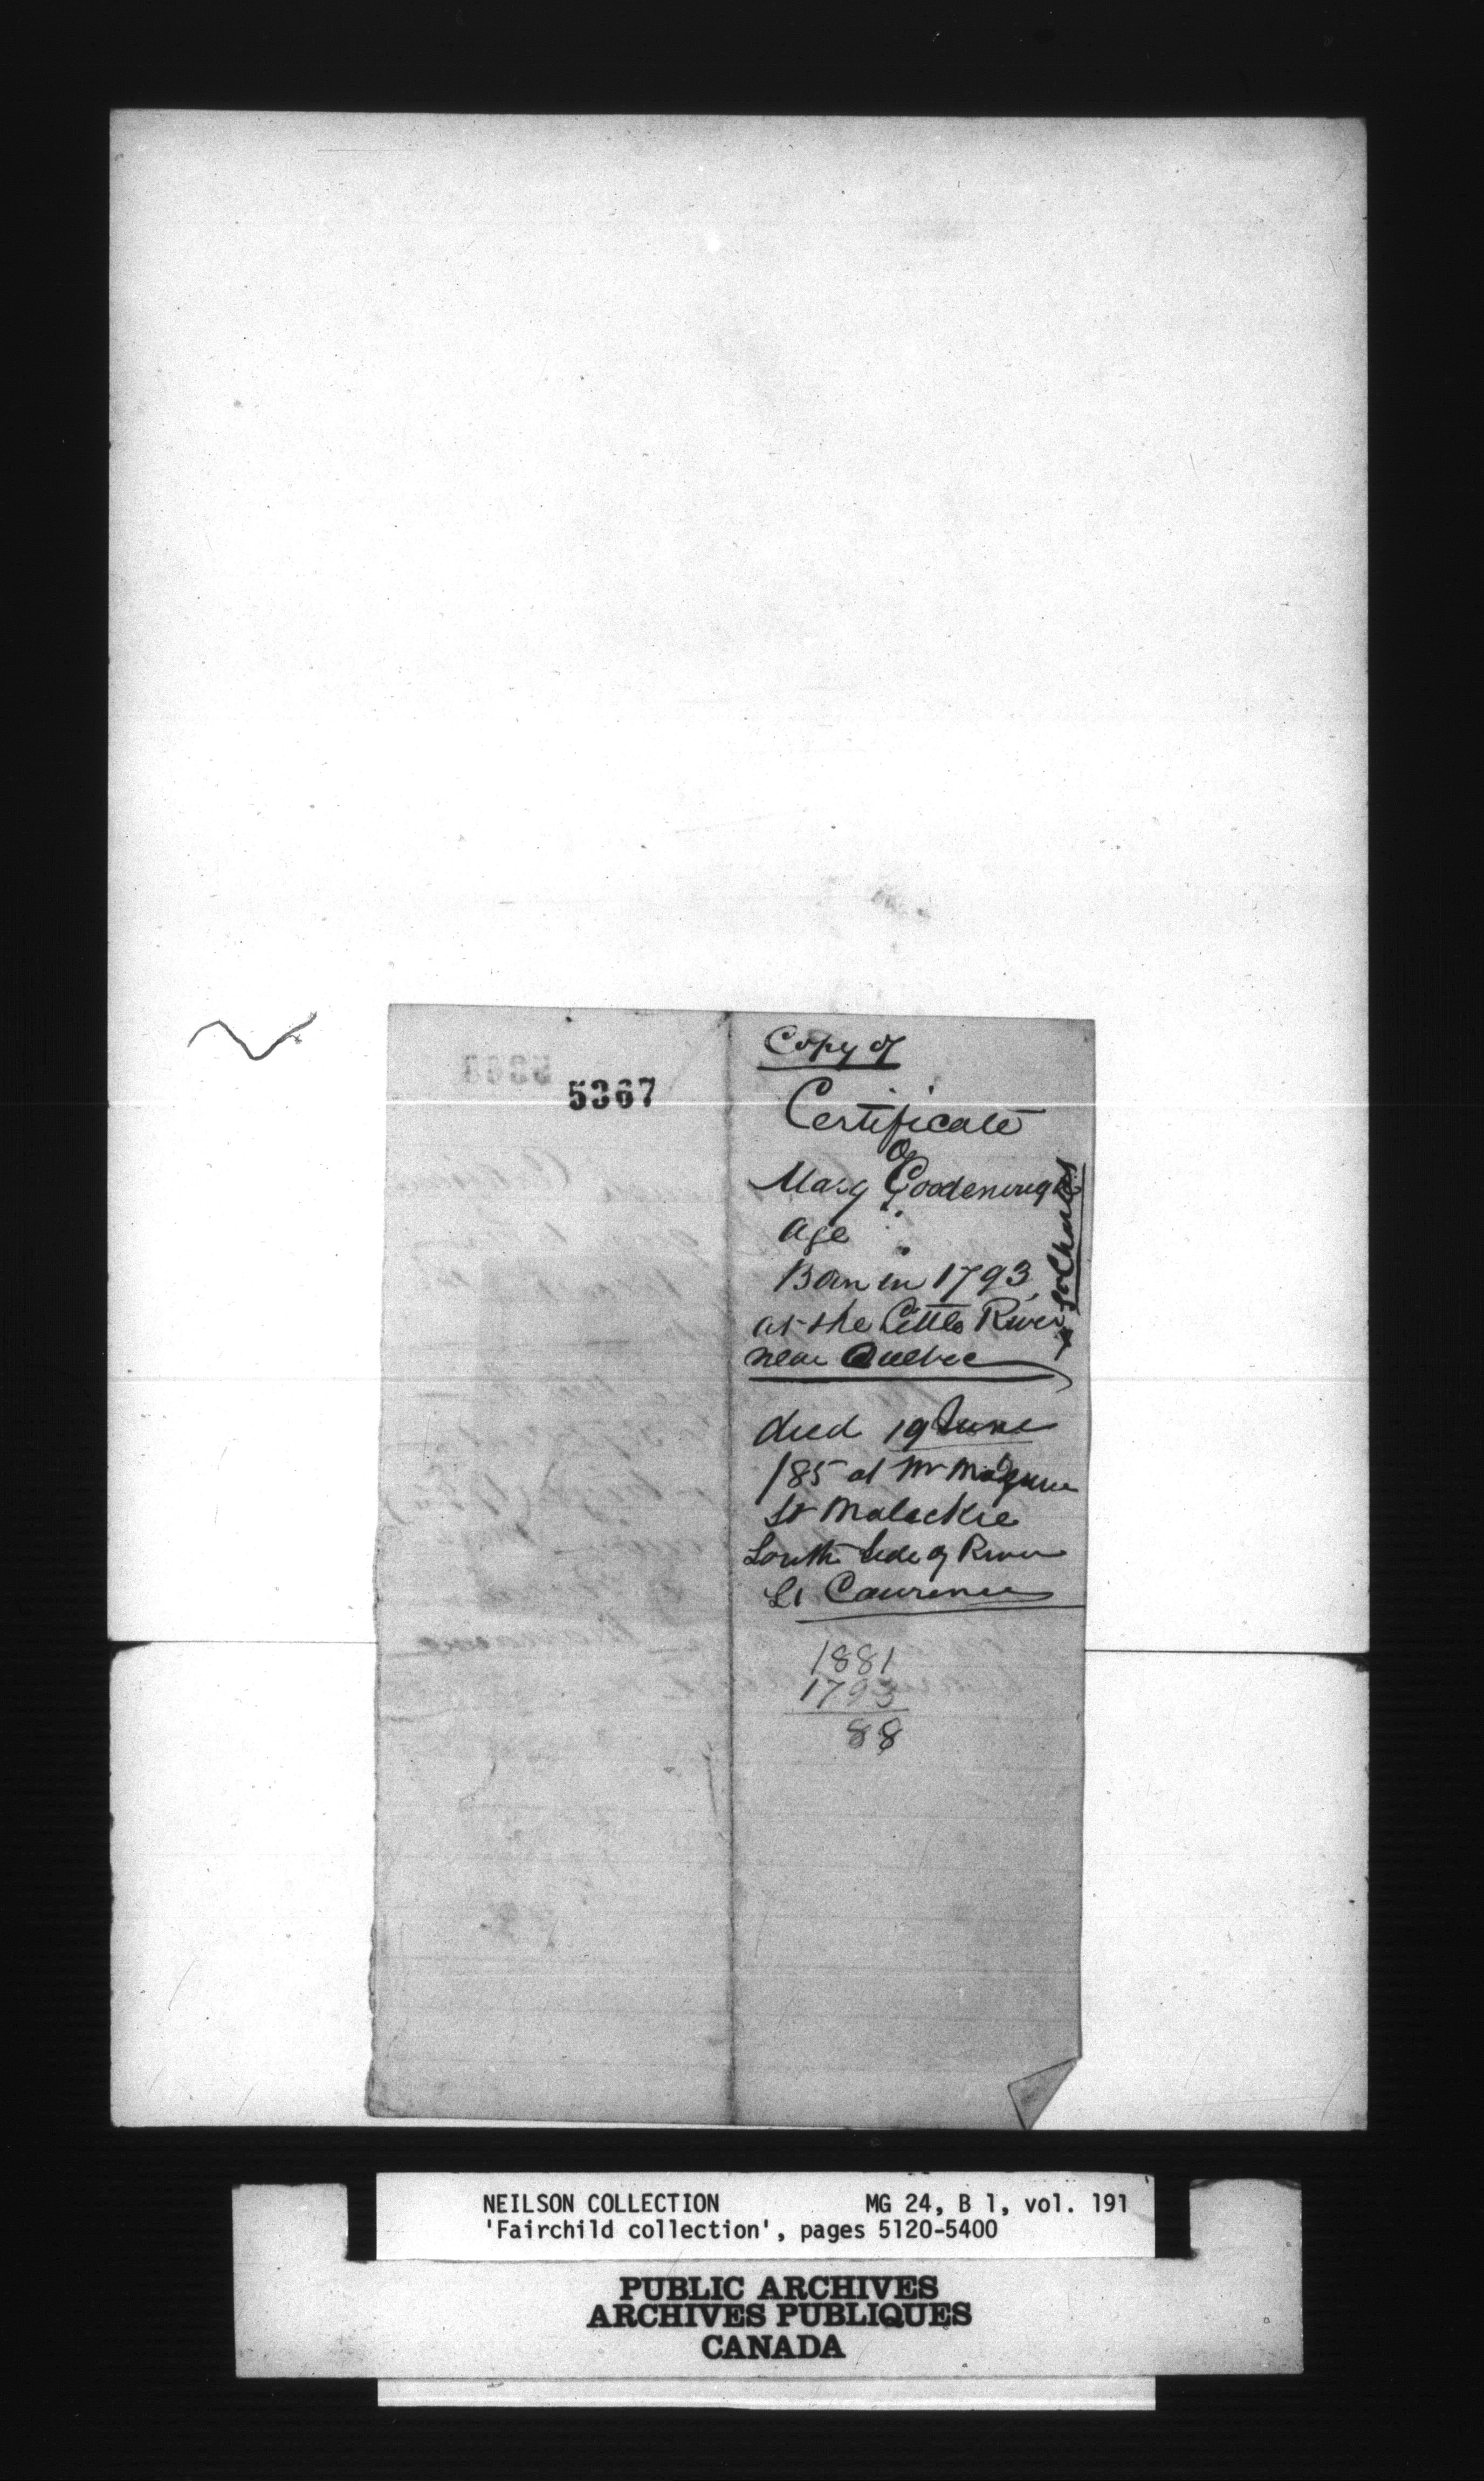 5367
Copy of
Certificate
Of
Mary Goodenough
age
Born in 1793
at the Little River
near Quebec
+ St Charles
died 19 June
185 at Mr Maguire
St Malackie
South Side of River
St Lawrence
1881
1793
88
NEILSON COLLECTION MG 24, B 1, vol. 191
'Fairchild collection', pages 5120-5400
PUBLIC ARCHIVES
ARCHIVES PUBLIQUES
CANADA